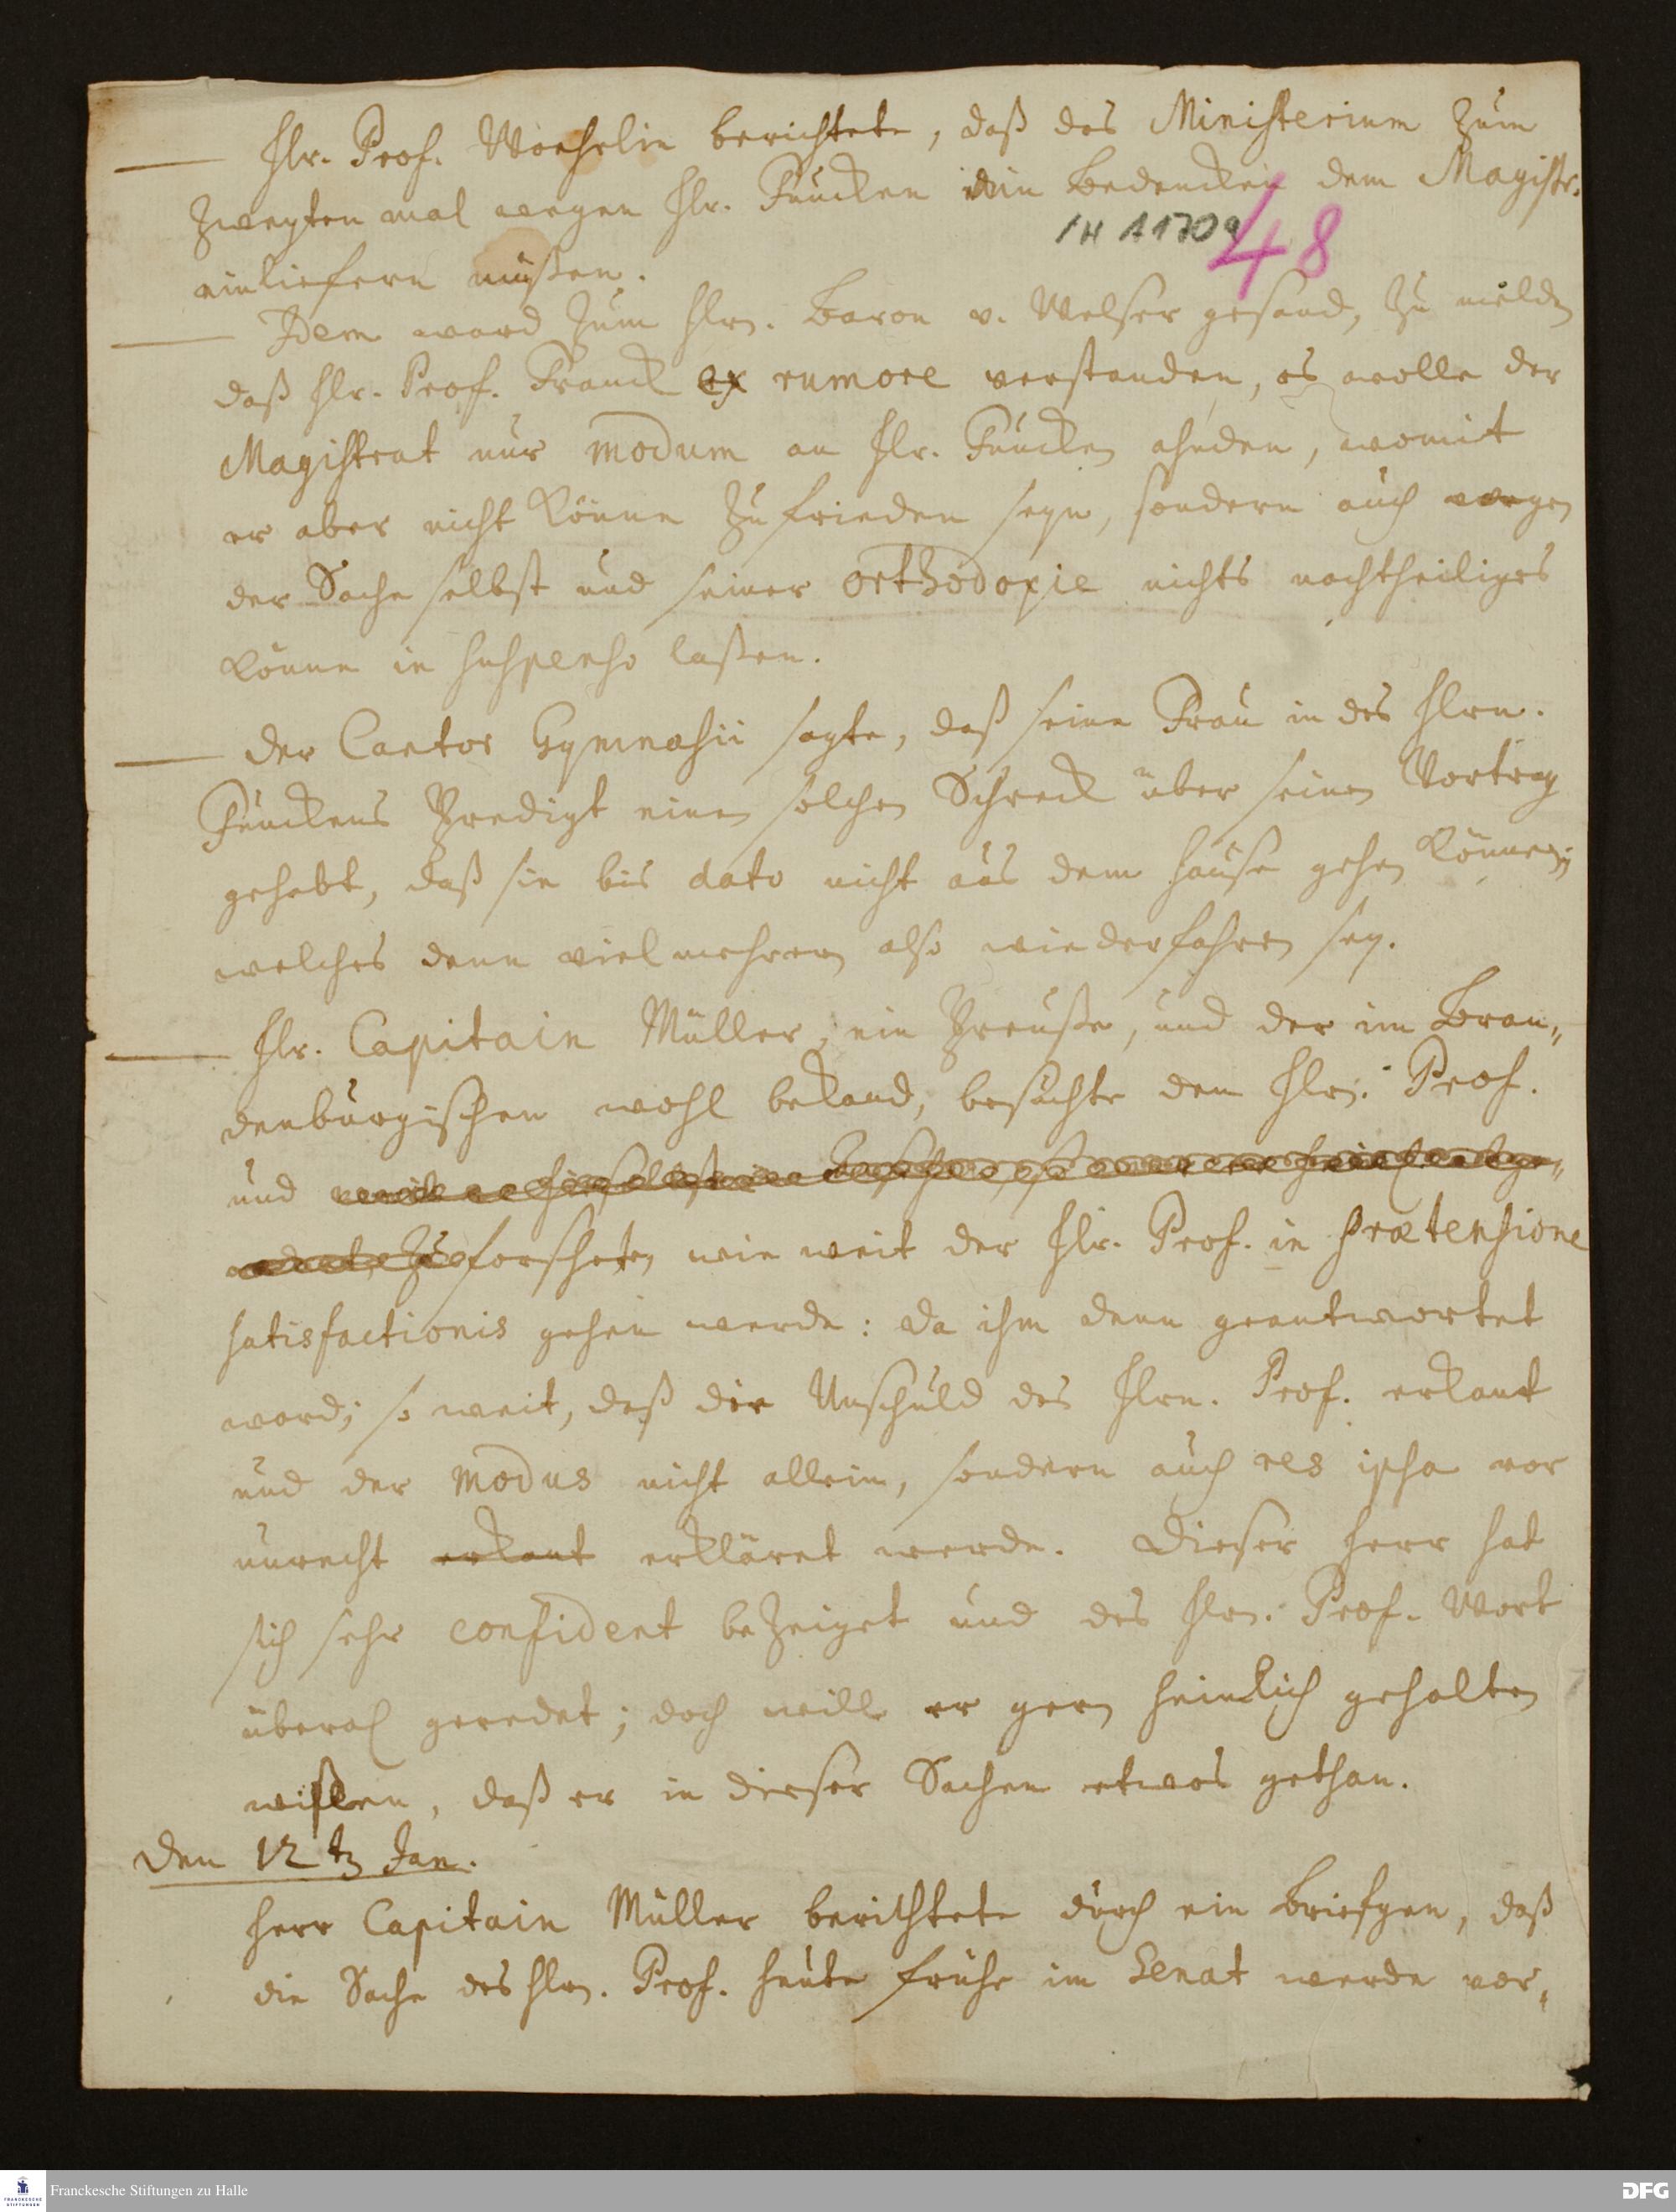 Hr. Prof. Woehrlin berichtete, daß das Ministerium zum
zweyten mal wegen Hr. Funcken ein Bedencken dem Magistr.
/H A 170a 48
einliefern müßen.
Idem ward zum Hrn. Baron v. Welser gesand, zu melden
daß Hr. Prof. Franck ex rumore verstanden, es wolle der
Magistrat nur modum an Hr. Funcken ahnden, womit
er aber nicht könne zu frieden seyn, sondern auch wegen
der Sache selbst und seiner orthodoxie nichts nachtheiliges
könne in suspenso laßen.
Der Cantor Gymnasii sagte, daß seine Frau in des Hrn.
Funckens Predigt einen solchen Schreck über seinen Vortrag
gehabt, daß sie bis dato nicht aus dem Hause gehen können;
welches denn viel mehrern also wiederfahren sey.
Hr. Capitain Müller, ein Preuße, und der im Bran„
denburgischen wohl bekand, besuchte den Hrn. Prof.
und
forschete, wie weit der Hr. Prof. in prætensione
satisfactionis gehen werde: da ihm denn geantwortet
ward; so weit, daß die Unschuld des Hrn. Prof. erkant
und der modus nicht allein, sondern auch res ipsa vor
unrecht erkant erkläret werde. Dieser Herr hat
sich sehr confident bezeiget und des Hrn. Prof. Wort
überal geredet; doch will er gern heimlich gehalten
wißen, daß er in dieser Sachen etwas gethan.
Den 12 t. Jan.
Herr Capitain Müller berichtete durch ein Briefgen, daß
die Sache des Hrn. Prof. heute frühe im Senat werde vor„
FRANCKESCHE STIFTUNGEN
Franckesche Stiftungen zu Halle
DFG